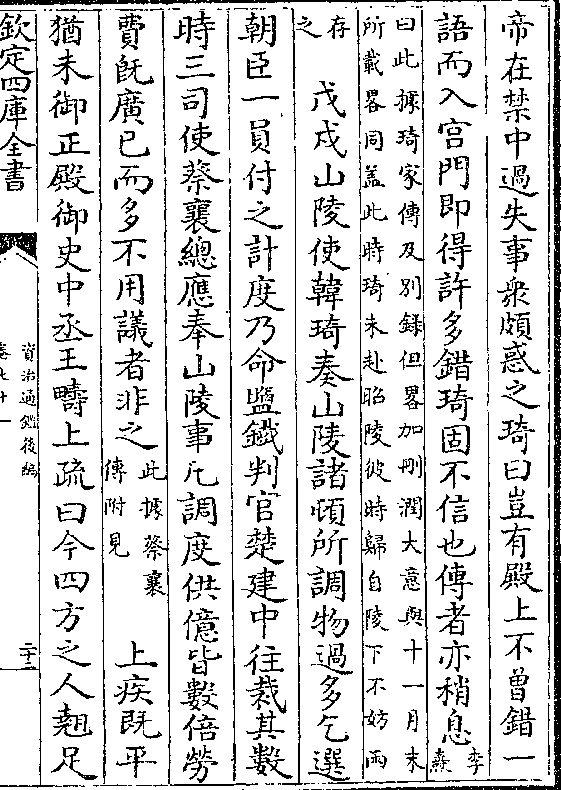 帝在禁中過失事衆頗惑之琦曰豈有殿上不曾錯一
語而入宫門即得許多錯琦固不信也傳者亦稍息李燾
曰此據琦家傳及别錄但畧加刪潤大意與十一月末
所載畧同盖此時琦未赴昭陵彼時歸自陵下不妨兩
存之
戊戌山陵使韓琦奏山陵諸頓所調物過多乞選
朝臣一員付之計度乃命鹽鐵判官楚建中往裁其數
時三司使蔡襄總應奉山陵事凡調度供億皆數倍勞
費旣廣已而多不用議者非之此據蔡襄傳附見 上疾既平
猶未御正殿御史中丞王疇上疏曰今四方之人翹足
欽定四庫全書
資治通鑑後編
卷七十一
二十二